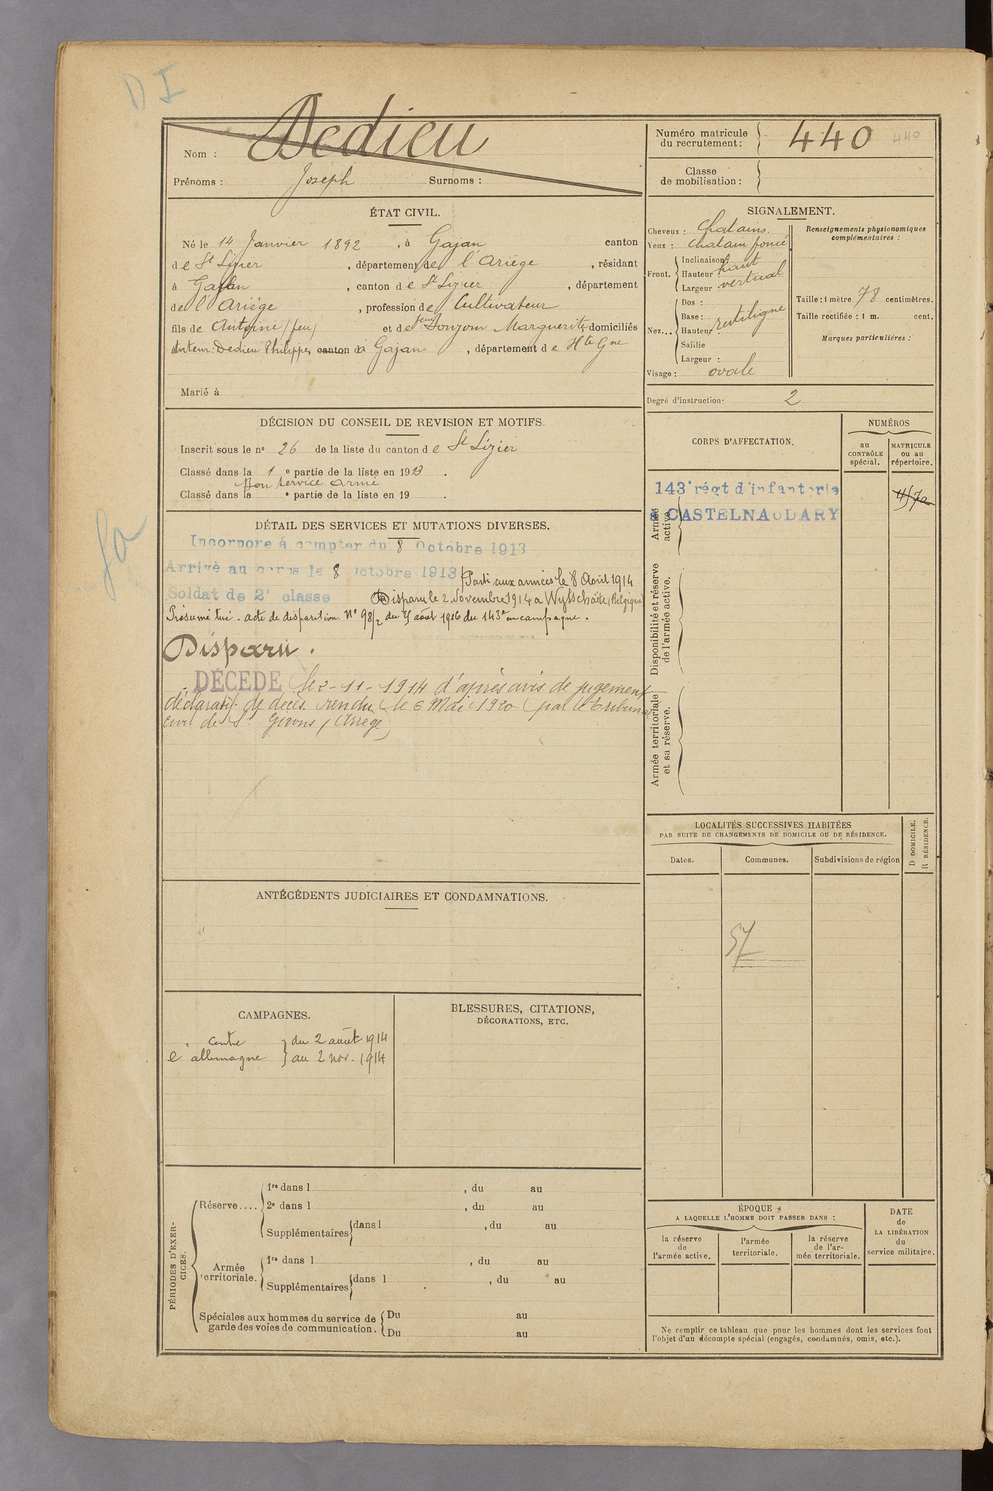 D I
Nom : Dedieu
Prénoms : Joseph Surnoms :
Numéro matricule
du recrutement : 440 440
Classe
de mobilisation :
ÉTAT CIVIL.
Né le 14 Janvier 1892, à Gajan canton
de St Lizier, département de l'Ariège, résidant
à Gajan, canton de St Lizier, département
de l'Ariège, profession de Cultivateur
fils de Antoine (feu) et de feue Donjon Marguerite domiciliés
tuteur: Dedieu Philippe canton à Gajan, département de Hte Gne
Marié à
SIGNALEMENT.
Cheveux : Chatains
Yeux : chatain foncé
Front. Inclinaison
Hauteur : haut
Largeur vertical
Nez... Dos :
Base :
Hauteur rectiligne
Saillie
Largeur :
Visage : ovale
Renseignements physionomiques
complémentaires :
Taille : 1 mètre 78 centimètres.
Taille rectifiée : 1 m. cent.
Marques particulières :
Degré d'instruction : 2
DÉCISION DU CONSEIL DE REVISION ET MOTIFS.
Inscrit sous le n° 26 de la liste du canton de St Lizier
Classé dans la 1e partie de la liste en 1913.
Bon service armé
Classé dans la e partie de la liste en 19 .
CORPS D'AFFECTATION.
NUMÉROS
au
CONTRÔLE
spécial.
MATRICULE
ou au
répertoire.
143e régt d'infanterie
à CASTELNAUDARY
Armée
active.
Disponibilité et réserve
de l'armée active.
Armée territoriale
et sa réserve.
DÉTAIL DES SERVICES ET MUTATIONS DIVERSES.
Incorporé à compter du 8 Octobre 1913
Arrivé au corps le 8 octobre 1913 Parti aux armées le 8 Août 1914
Soldat de 2e classe Disparu le 2 Novembre 1914 à Wytschaëte (Belgique)
Présumé tué. acte de disparition N° 98/2 du août 1916 du 143e en campagne.
Disparu.
DÉCÉDÉ le 2-11-1914 d'après avis de jugement
déclaratif de décès rendu le 6 Mai 1920 par le tribunal
civil de St Girons (Ariège)
LOCALITÉS SUCCESSIVES HABITÉES
PAR SUITE DE CHANGEMENTS DE DOMICILE OU DE RÉSIDENCE.
Dates.
Communes.
Subdivisions de région
D DOMICILE.
R RÉSIDENCE.
57
ANTÉCÉDENTS JUDICIAIRES ET CONDAMNATIONS.
CAMPAGNES.
contre du 2 août 1914
l'allemagne au 2 nov. 1914
BLESSURES, CITATIONS,
DÉCORATIONS, ETC.
PÉRIODES D'EXER-
CICES.
Réserve....
1re dans l , du au
2e dans l , du au
Supplémentaires dans l , du au
Armée
territoriale.
1re dans l , du au
Supplémentaires dans l , du au
Spéciales aux hommes du service de
garde des voies de communication.
Du au
Du au
ÉPOQUE
A LAQUELLE L'HOMME DOIT PASSER DANS :
la réserve
de
l'armée active.
l'armée
territoriale.
la réserve
de l'ar-
mée territoriale.
DATE
de
LA LIBÉRATION
du
service militaire.
Ne remplir ce tableau que pour les hommes dont les services font
l'objet d'un décompte spécial (engagés, condamnés, omis, etc.).